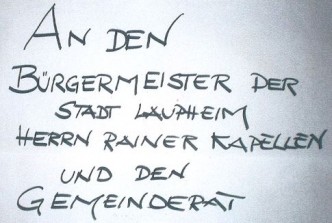 AN DEN
BÜRGERMEISTER DER
STADT LAUPHEIM
HERRN RAINER KAPELLEN
UND DEN
GEMEINDERAT